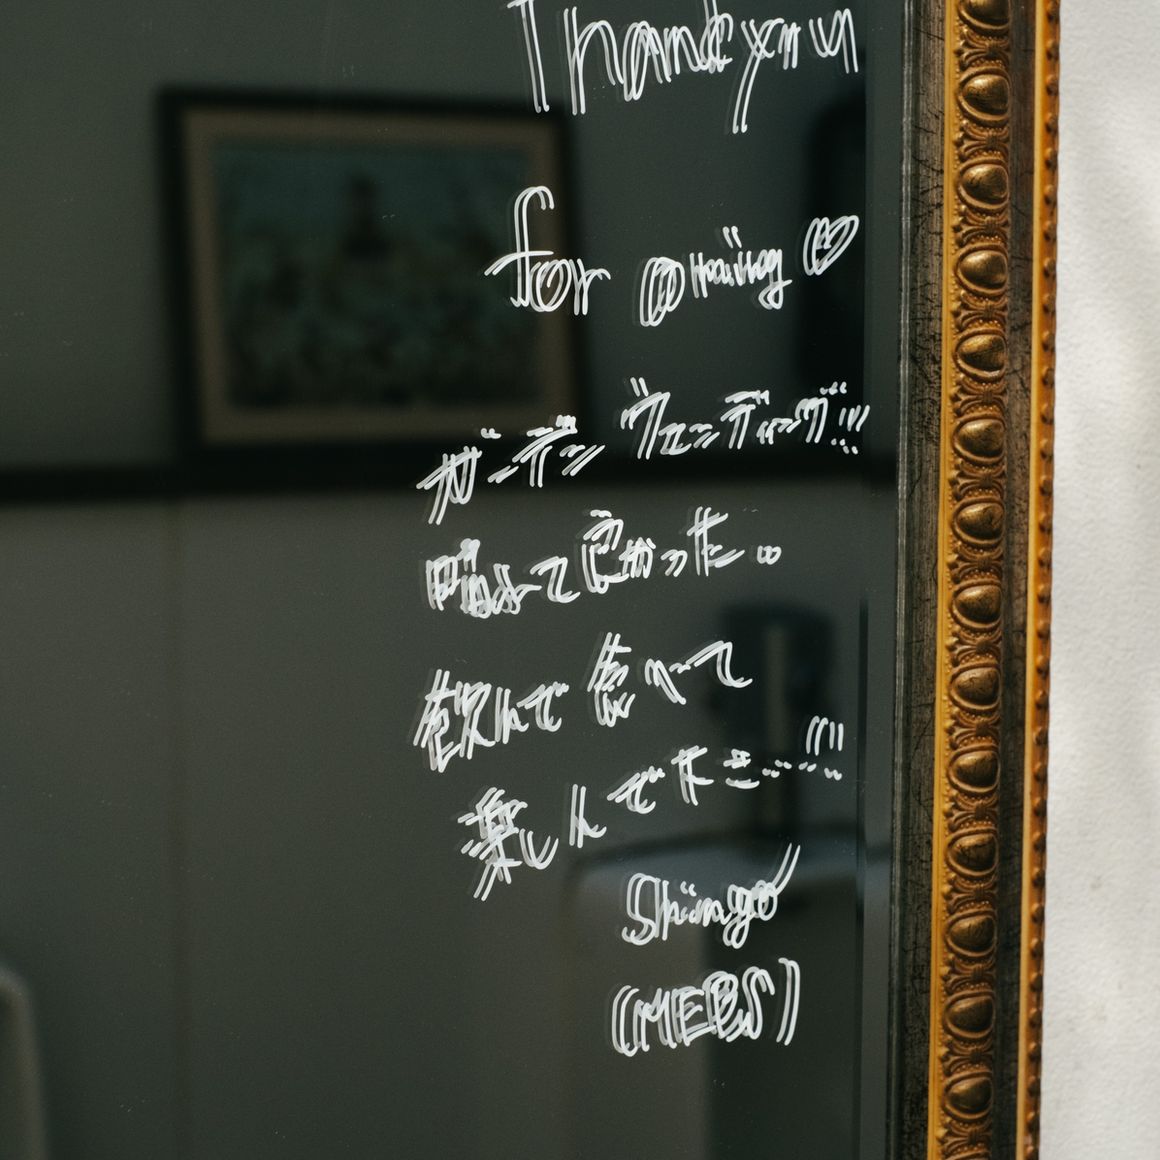 Thank you
for coming♡
ガーデンウェディング!!!
晴れて良かった。
飲んで食べて
楽しんでたき…!!
Shingo
(MEBS)